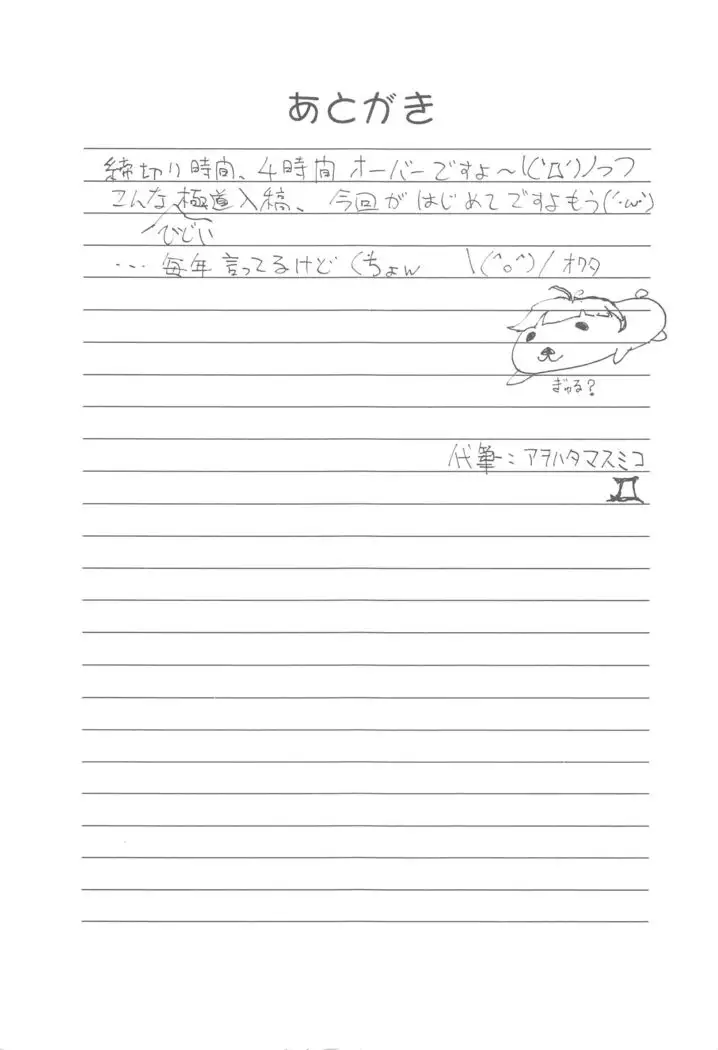 あとがき
締切り時間、4時間オーバーですよ～\(('Д')ノっつ
こんな極道入稿、今回がはじめてですよもう('･ω･')
びじい
… 毎年言ってるけどくちょw \(^o^)/ オワタ
ぎゅる?
代筆：アヲハタマスミコ